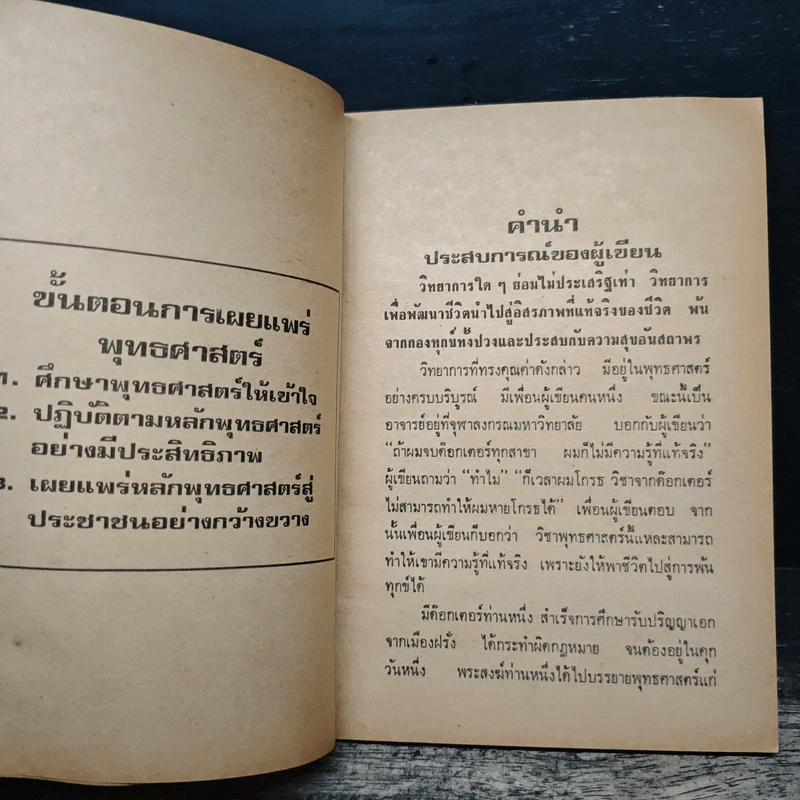 ขั้นตอนการเผยแพร่
พุทธศาสตร์
1. ศึกษาพุทธศาสตร์ให้เข้าใจ
2. ปฏิบัติตามหลักพุทธศาสตร์
อย่างมีประสิทธิภาพ
3. เผยแพร่หลักพุทธศาสตร์สู่
ประชาชนอย่างกว้างขวาง
คำนำ
ประสบการณ์ของผู้เขียน
วิทยาการใด ๆ ย่อมไม่ประเสริฐเท่า วิทยาการ
เพื่อพัฒนาชีวิตนำไปสู่อิสรภาพที่แท้จริงของชีวิต พ้น
จากกองทุกข์ทั้งปวงและประสบกับความสุขอันสถาพร
วิทยาการที่ทรงคุณค่าดังกล่าว มีอยู่ในพุทธศาสตร์
อย่างครบบริบูรณ์ มีเพื่อนผู้เขียนคนหนึ่ง ขณะนี้เป็น
อาจารย์อยู่ที่จุฬาลงกรณมหาวิทยาลัย บอกกับผู้เขียนว่า
“ถ้าผมจบด๊อกเตอร์ทุกสาขา ผมก็ไม่มีความรู้ที่แท้จริง”
ผู้เขียนถามว่า “ทำไม” “ก็เวลาผมโกรธ วิชาจากด๊อกเตอร์
ไม่สามารถทำให้ผมหายโกรธได้” เพื่อนผู้เขียนตอบ จาก
นั้นเพื่อนผู้เขียนก็บอกว่า วิชาพุทธศาสตร์นี้แหละสามารถ
ทำให้เขามีความรู้ที่แท้จริง เพราะยังให้พาชีวิตไปสู่การพ้น
ทุกข์ได้
มีด๊อกเตอร์ท่านหนึ่ง สำเร็จการศึกษารับปริญญาเอก
จากเมืองฝรั่ง ได้กระทำผิดกฎหมาย จนต้องอยู่ในคุก
วันหนึ่ง พระสงฆ์ท่านหนึ่งได้ไปบรรยายพุทธศาสตร์แก่